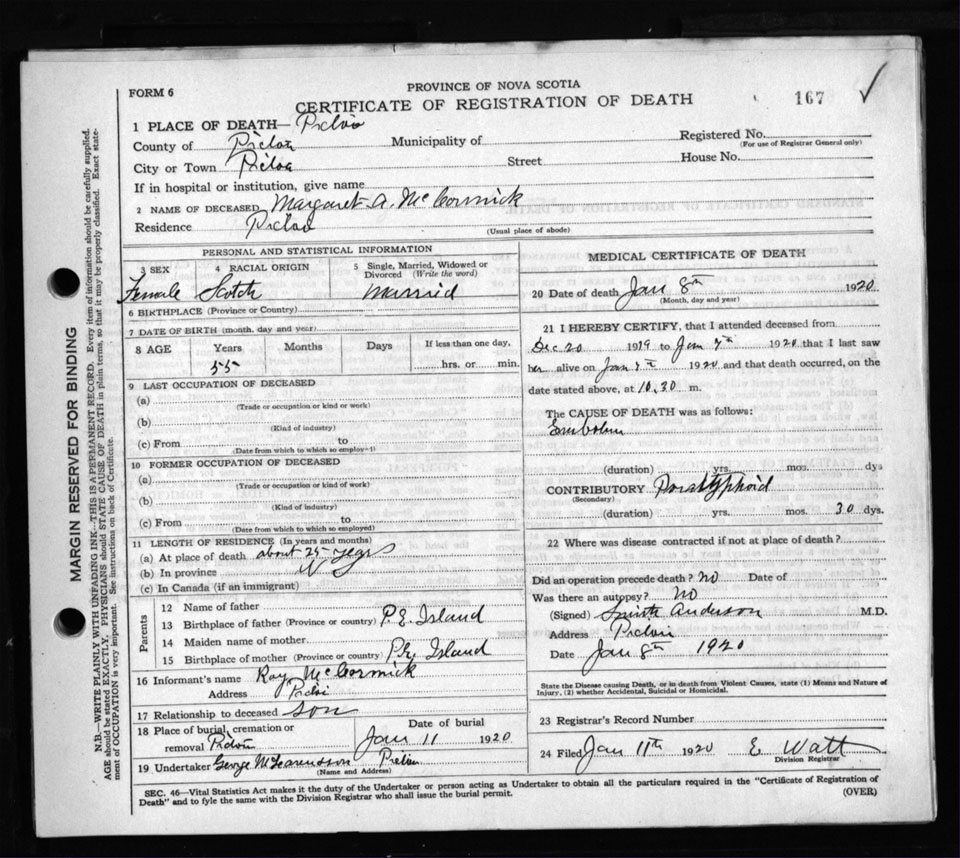 FORM 6
PROVINCE OF NOVA SCOTIA
CERTIFICATE OF REGISTRATION OF DEATH
167 ✓
1 PLACE OF DEATH— Pictou
County of Pictou Municipality of Registered No.
(For use of Registrar General only)
City or Town Pictou Street House No.
If in hospital or institution, give name
2 NAME OF DECEASED Margaret A. McCormick
Residence Pictou (Usual place of abode)
PERSONAL AND STATISTICAL INFORMATION
3 SEX 4 RACIAL ORIGIN 5 Single, Married, Widowed or Divorced (Write the word)
Female Scotch Married
6 BIRTHPLACE (Province or Country)
7 DATE OF BIRTH (month, day and year)
8 AGE Years Months Days If less than one day,
55 hrs. or min.
9 LAST OCCUPATION OF DECEASED
(a)
(Trade or occupation or kind of work)
(b)
(Kind of industry)
(c) From to
(Date from which to which so employed)
10 FORMER OCCUPATION OF DECEASED
(a)
(Trade or occupation or kind of work)
(b)
(Kind of industry)
(c) From to
(Date from which to which so employed)
11 LENGTH OF RESIDENCE (In years and months)
(a) At place of death about 25 years
(b) In province
(c) In Canada (if an immigrant)
Parents
12 Name of father
13 Birthplace of father (Province or country) P.E. Island
14 Maiden name of mother
15 Birthplace of mother (Province or country) P.E. Island
16 Informant's name Ray McCormick
Address Pictou
17 Relationship to deceased son
18 Place of burial, cremation or removal Pictou Date of burial Jan 11 1920
19 Undertaker George Pictou
(Name and Address)
MEDICAL CERTIFICATE OF DEATH
20 Date of death Jan 8th 1920
(Month, day and year)
21 I HEREBY CERTIFY, that I attended deceased from
Dec 20 1919 to Jan 7th 1920 that I last saw
her alive on Jan 7th 1920 and that death occurred, on the
date stated above, at 10.30 m.
The CAUSE OF DEATH was as follows:
Embolism
(duration) yrs. mos. dys
CONTRIBUTORY Paratyphoid
(Secondary)
(duration) yrs. mos. 30 dys.
22 Where was disease contracted if not at place of death?
Did an operation precede death? no Date of
Was there an autopsy? No
(Signed) Anderson M.D.
Address Pictou
Date Jan 8th 1920
State the Disease causing Death, or in death from Violent Causes, state (1) Means and Nature of
Injury, (2) whether Accidental, Suicidal or Homicidal.
23 Registrar's Record Number
24 Filed Jan 11th 1920 E Watt
Division Registrar
SEC. 46—Vital Statistics Act makes it the duty of the Undertaker or person acting as Undertaker to obtain all the particulars required in the "Certificate of Registration of
Death" and to fyle the same with the Division Registrar who shall issue the burial permit. (OVER)
MARGIN RESERVED FOR BINDING
N.B.—WRITE PLAINLY WITH UNFADING INK—THIS IS A PERMANENT RECORD. Every item of information should be carefully supplied.
AGE should be stated EXACTLY. PHYSICIANS should STATE CAUSE OF DEATH in plain terms, so that it may be properly classified. Exact state-
ment of OCCUPATION is very important. See instructions on back of Certificate.